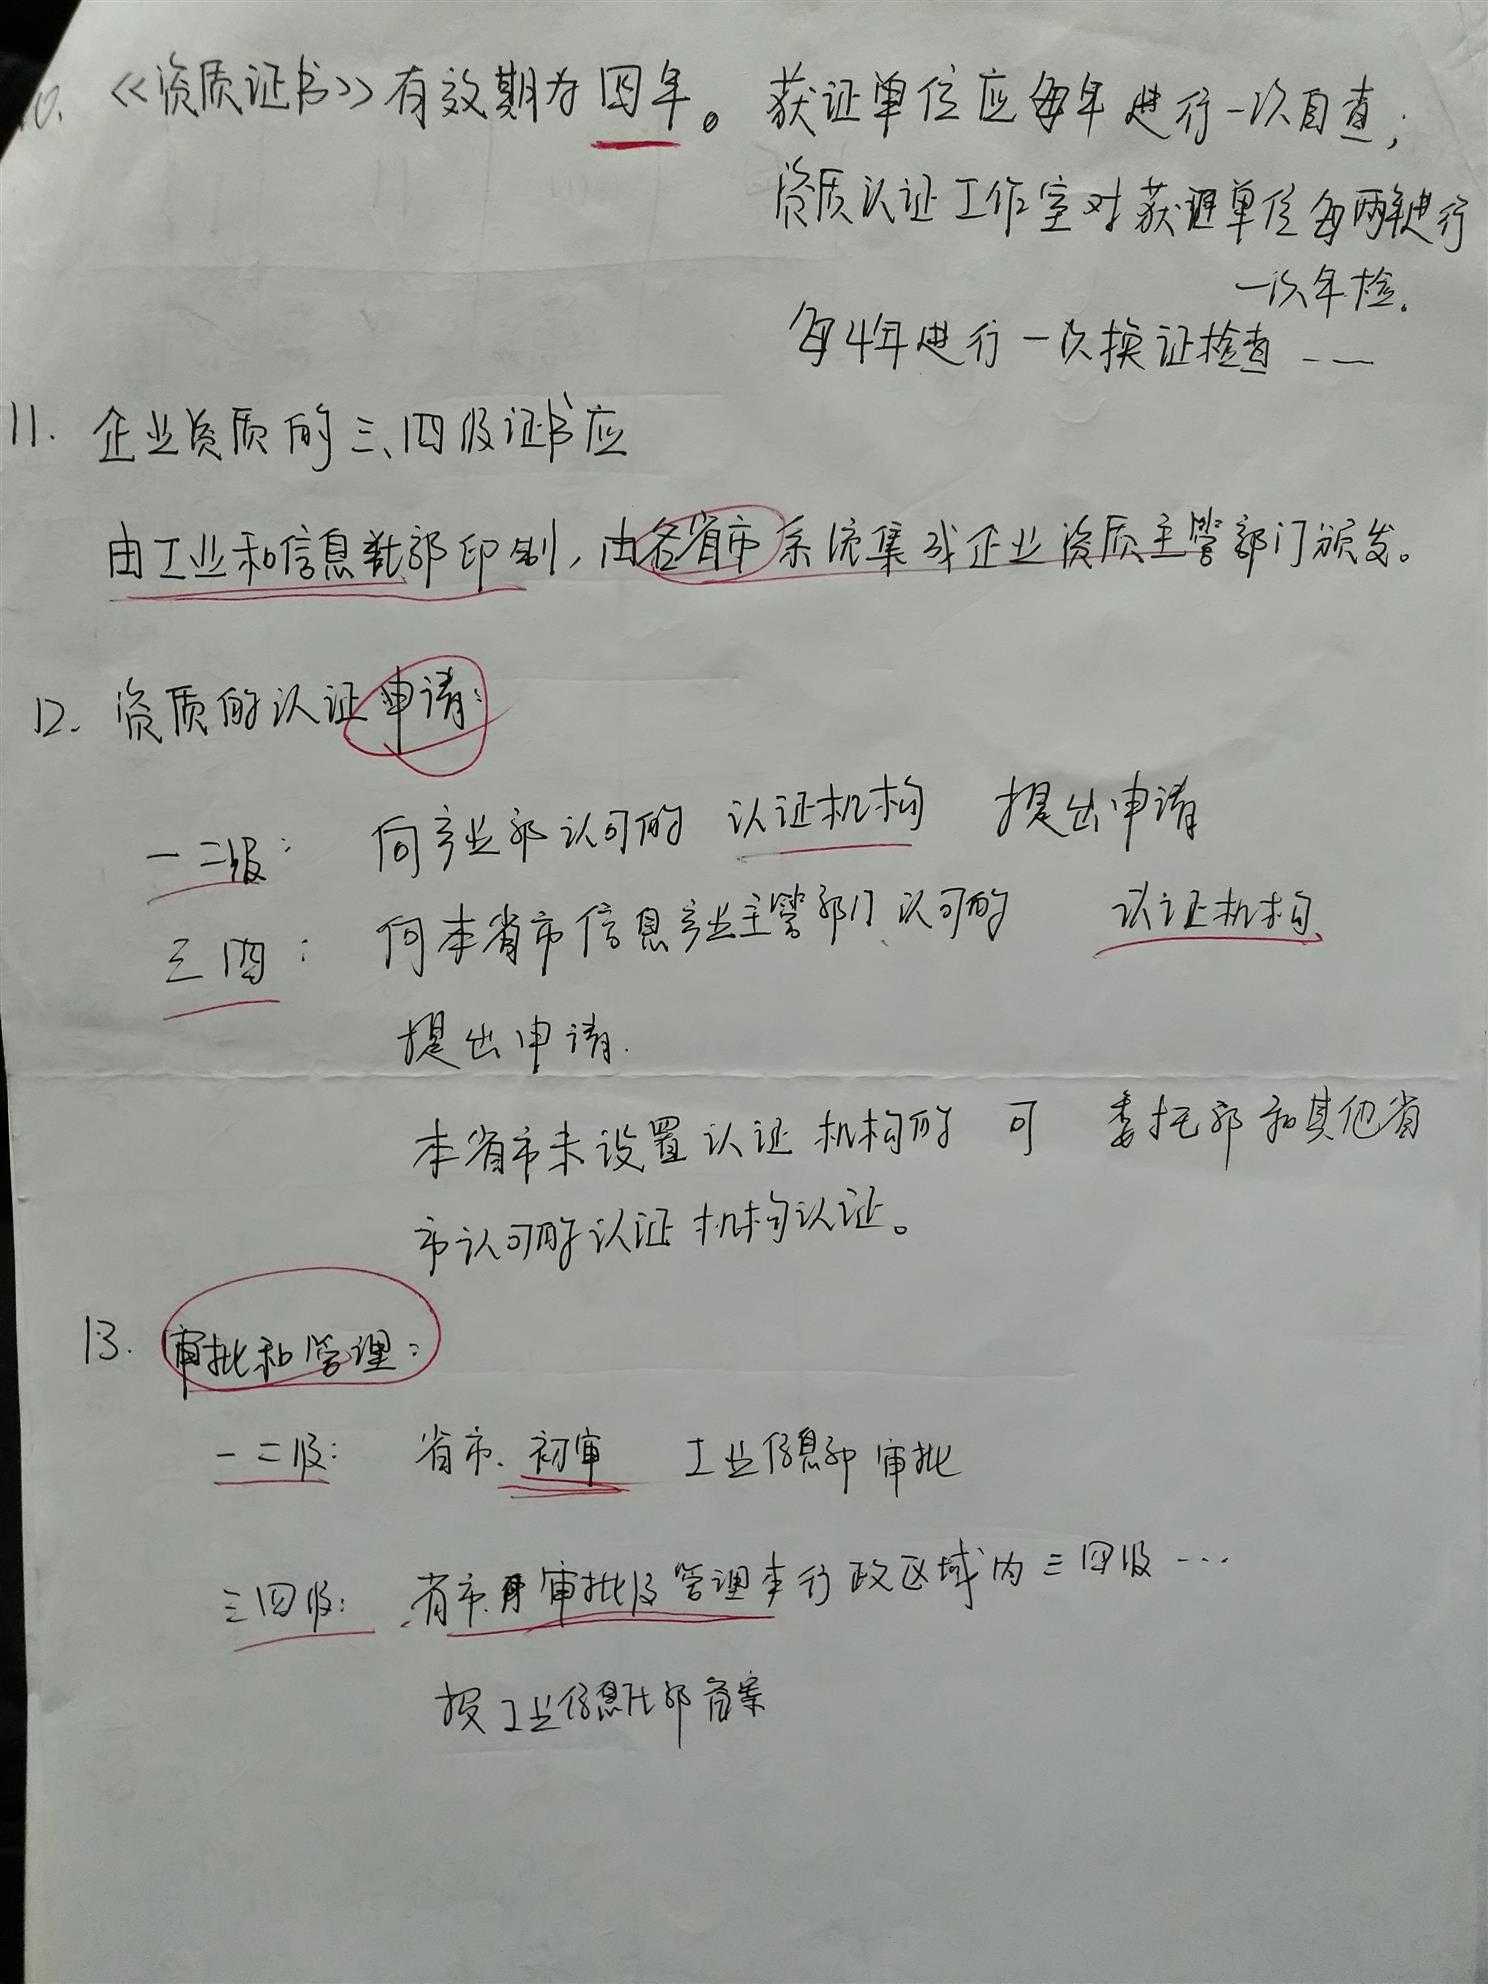 10. 《资质证书》有效期为四年。 获证单位应每年进行一次自查;
资质认证工作室对获证单位每两年进行
一次年检.
每4年进行一次换证检查 ——
11. 企业资质的三、四级证书应
由工业和信息化部印制,由各省市系统集成企业资质主管部门颁发。
12. 资质的认证申请:
一二级: 向产业部认可的 认证机构 提出申请
三四: 向本省市信息产业主管部门认可的 认证机构
提出申请.
本省市未设置认证机构的 可 委托部和其他省
市认可的认证机构认证。
13. 审批和管理:
一二级: 省市.初审 工业信息部审批
三四级: 省市 审批及管理本行政区域内三四级…
报工业信息化部备案